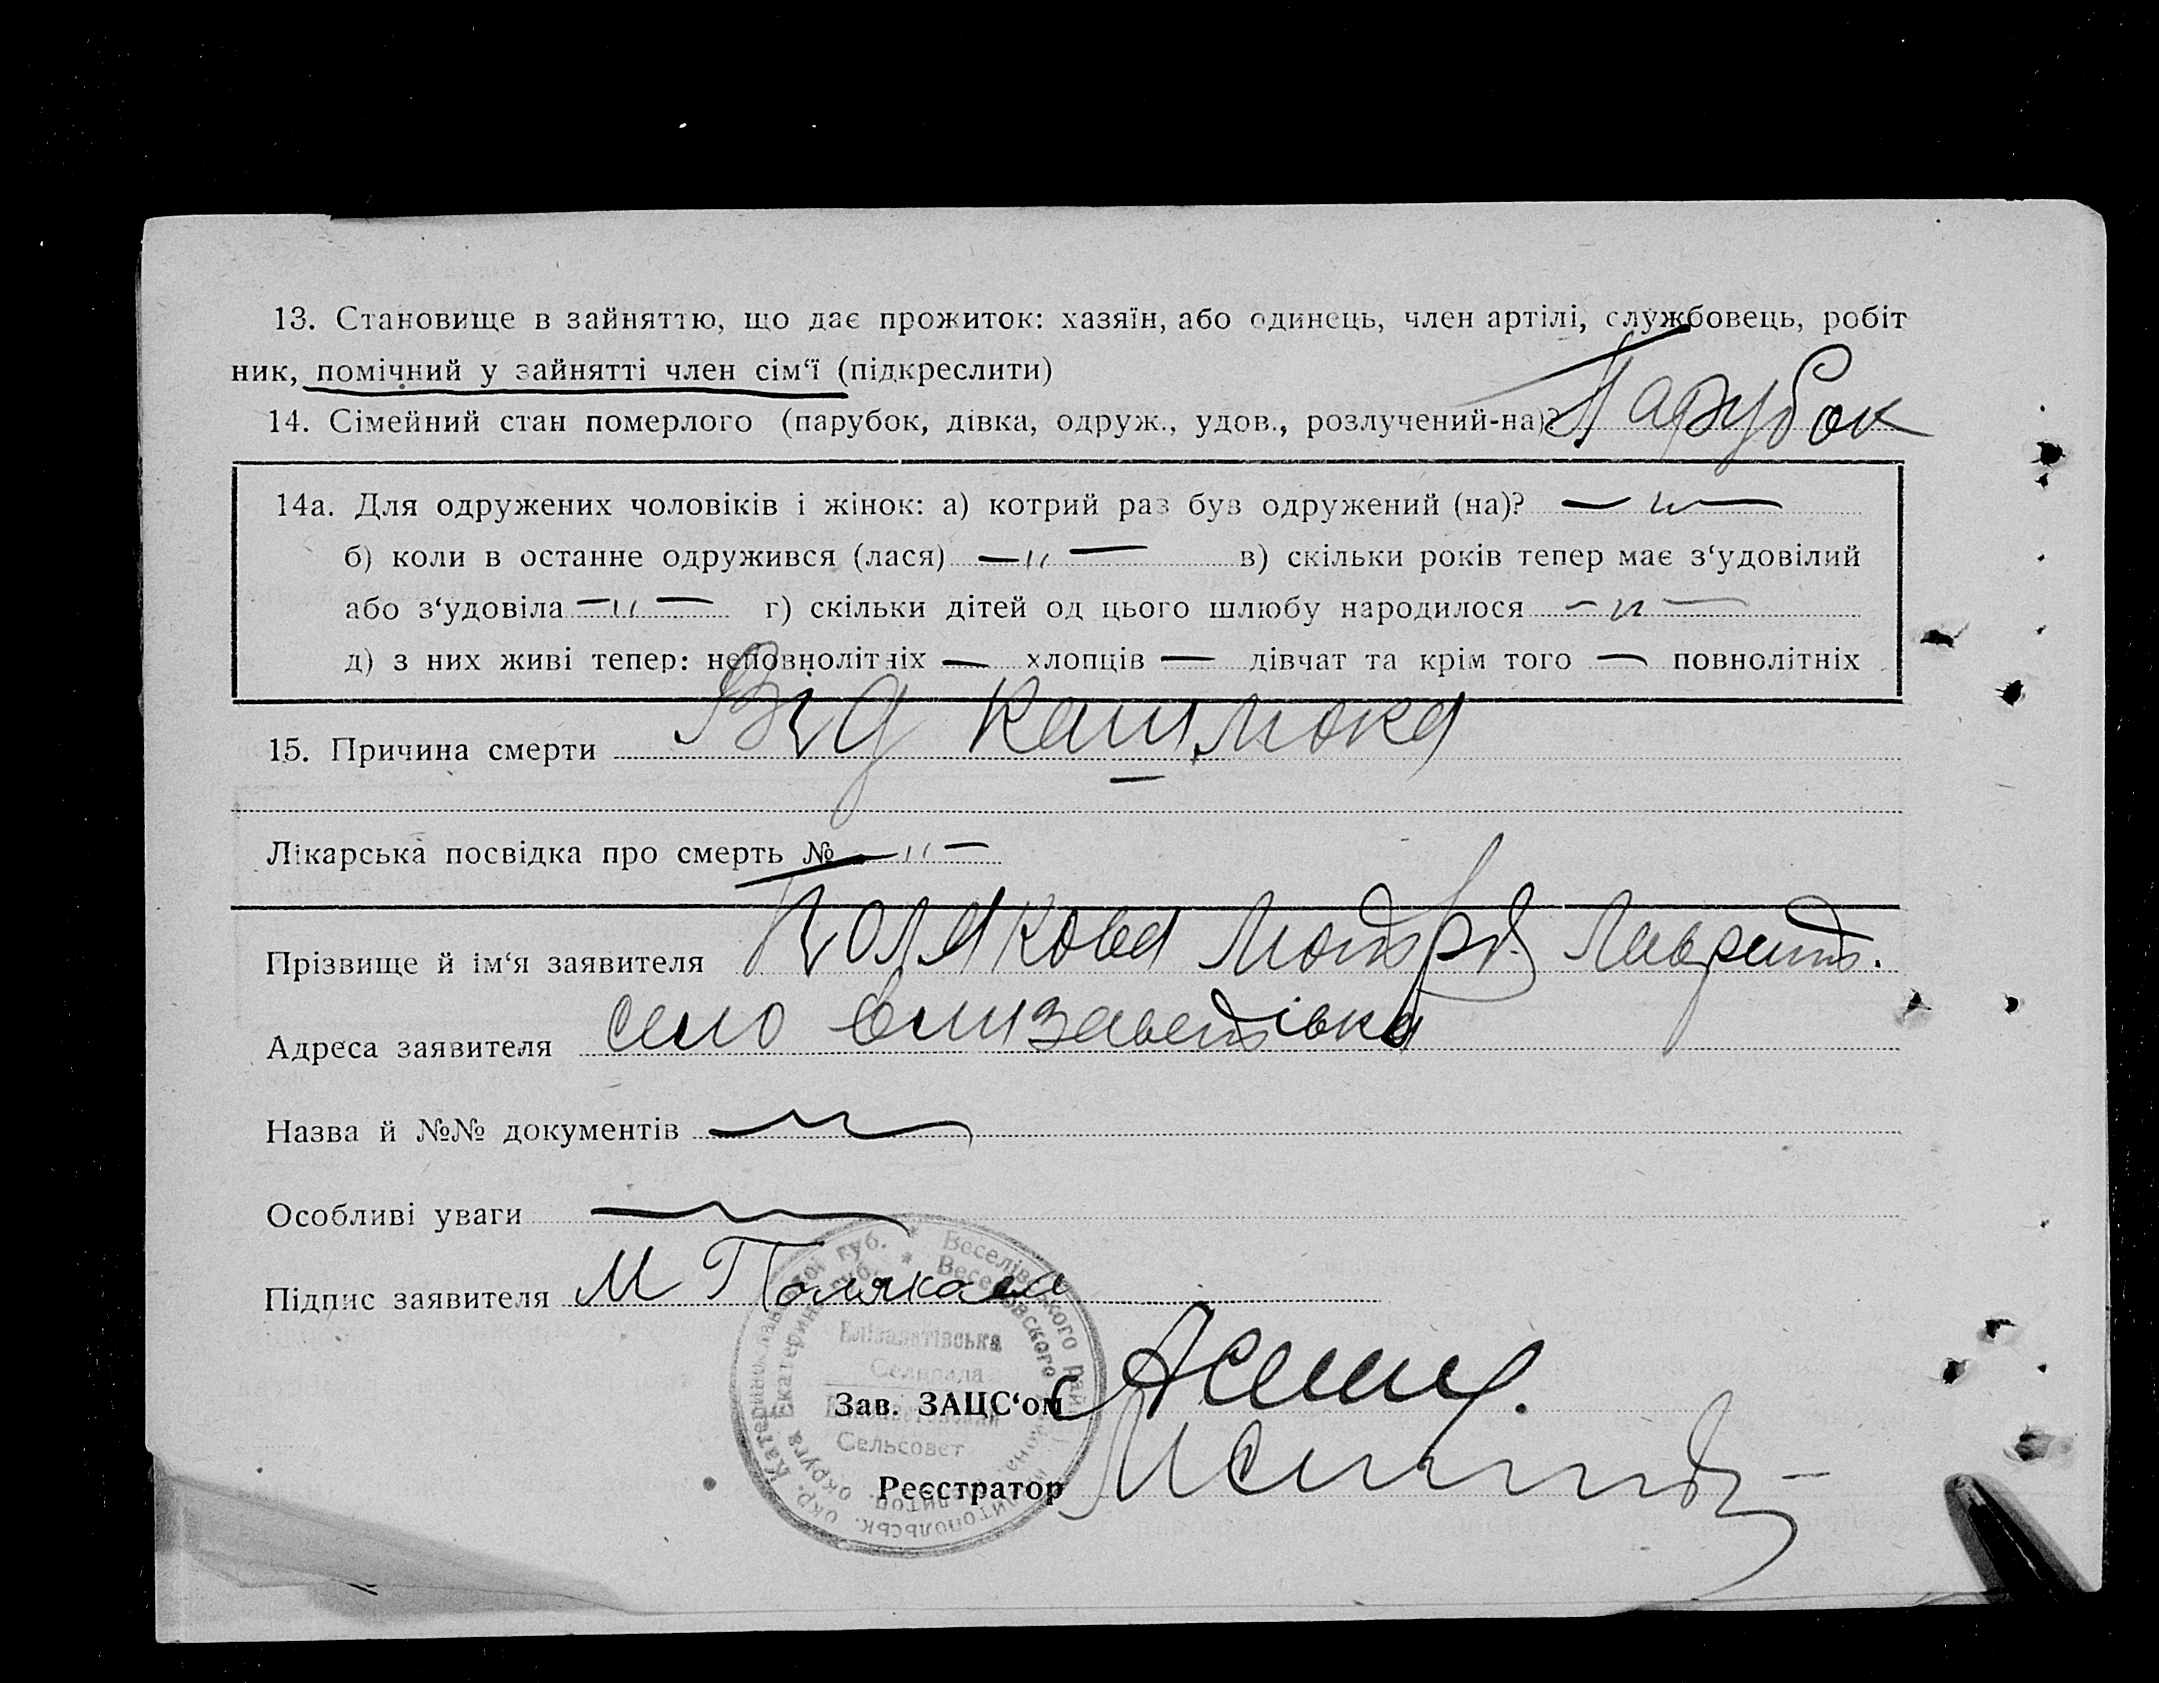 13. Становище в зайняттю, що дає прожиток: хазяїн, або одинець, член артілі, службовець, робіт
ник, помічний у зайнятті член сім‘ї (підкреслити)
14. Сімейний стан померлого (парубок, дівка, одруж., удов., розлучений-на)? Парубок
14а. Для одружених чоловіків і жінок: а) котрий раз був одружений (на)? — „ —
б) коли в останнє одружився (лася) — „ — в) скільки років тепер має з‘удовілий
або з‘удовіла — „ — г) скільки дітей од цього шлюбу народилося — „ —
д) з них живі тепер: неповнолітніх — хлопців — дівчат та крім того — повнолітніх
15. Причина смерти Від кашлюка
Лікарська посвідка про смерть № — „ —
Прізвище й ім‘я заявителя Полякова Мотря
Адреса заявителя село Єлизаветівка
Назва й №№ документів
Особливі уваги
Підпис заявителя М Полякова
Веселівського рай.
Єлізаветівська
Сельрада
Сельсовет
Зав. ЗАЦС‘ом
Реєстратор